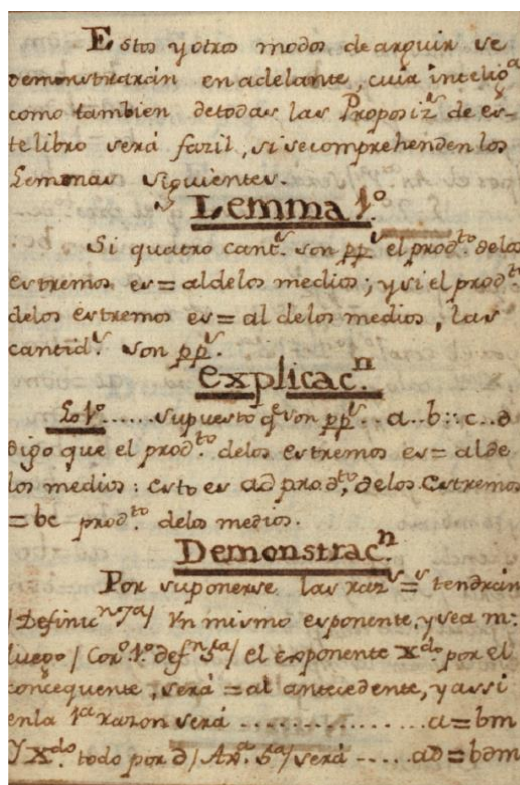 Estos y otros modos de arguir se
demonstrarán en adelante, cuia intelig.ª
como tambien de todas las Proposiz.ˢ de es-
te libro será fazil, si se comprehenden los
Lemmas siguientes.
Lemma 1º.
Si quatro cant.ˢ son pp.ˢ el prod.ᵗᵒ de los
estremos es = al de los medios; y si el prod.ᵗᵒ
de los estremos es = al de los medios, las
cantid.ˢ son pp.ˢ.
explicac.ⁿ
Lo 1º...... supuesto q.ᵉ son pp.ˢ. a..b::c..d
digo que el prod.ᵗᵒ de los estremos es = al de
los medios: esto es ad prod.ᵗᵒ, de los estremos
= bc prod.ᵗᵒ de los medios.
Demonstrac.ⁿ
Por suponerse las raz.ˢ =.ˢ tendrán
/Definic.ⁿ 7ª/ Vn mismo esponente, y sea m:
luego /Cor.º 1.º def.ⁿ 5ª/ el exponente X.ᵈᵒ por el
consequente, será = al antecedente, y assi
en la 1ª razon será .................. a=bm
Y X.ᵈᵒ todo por d /Ax.ª 6ª/ será ..... ad=bdm